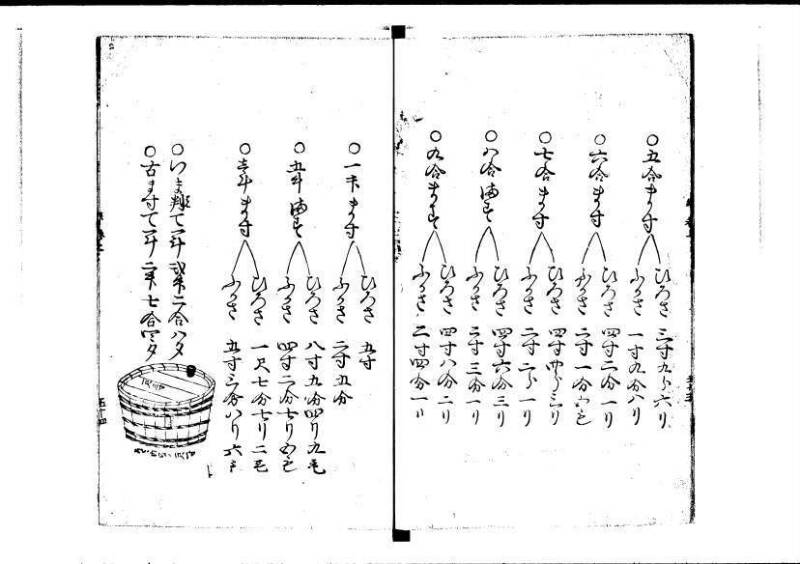 ○五合ます
ひろさ 三寸九分六リ
ふかさ 一寸九分八リ
○六合ます
ひろさ 四寸二分一リ
ふかさ 二寸一分五毛
○七合ます
ひろさ 四寸四分三リ
ふかさ 二寸二分一リ
○八合ます
ひろさ 四寸六分三リ
ふかさ 二寸三分一リ
○九合ます
ひろさ 四寸八分二リ
ふかさ 二寸四分一リ
○一升ます
ひろさ 五寸
ふかさ 二寸五分
○五升ます
ひろさ 八寸九分四リ九毛
ふかさ 四寸二分七リ五毛
○壱斗ます
ひろさ 一尺七分七リ二毛
ふかさ 五寸三分八リ六毛
○いま舛て一斗 弐升二合八夕
○古ますて一斗 二升七合四夕